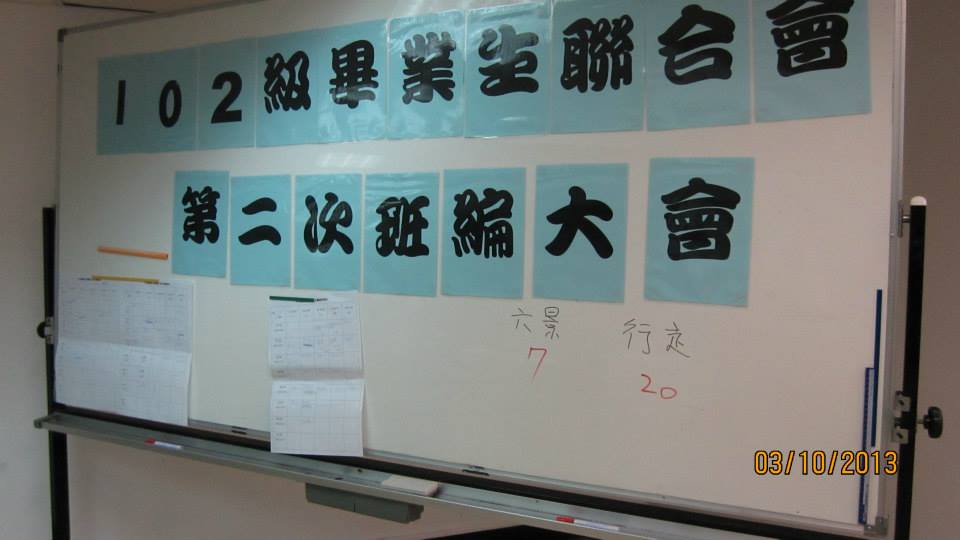 102級畢業生聯合會
第二次班編大會
六景 行走
7 20
03/10/2013